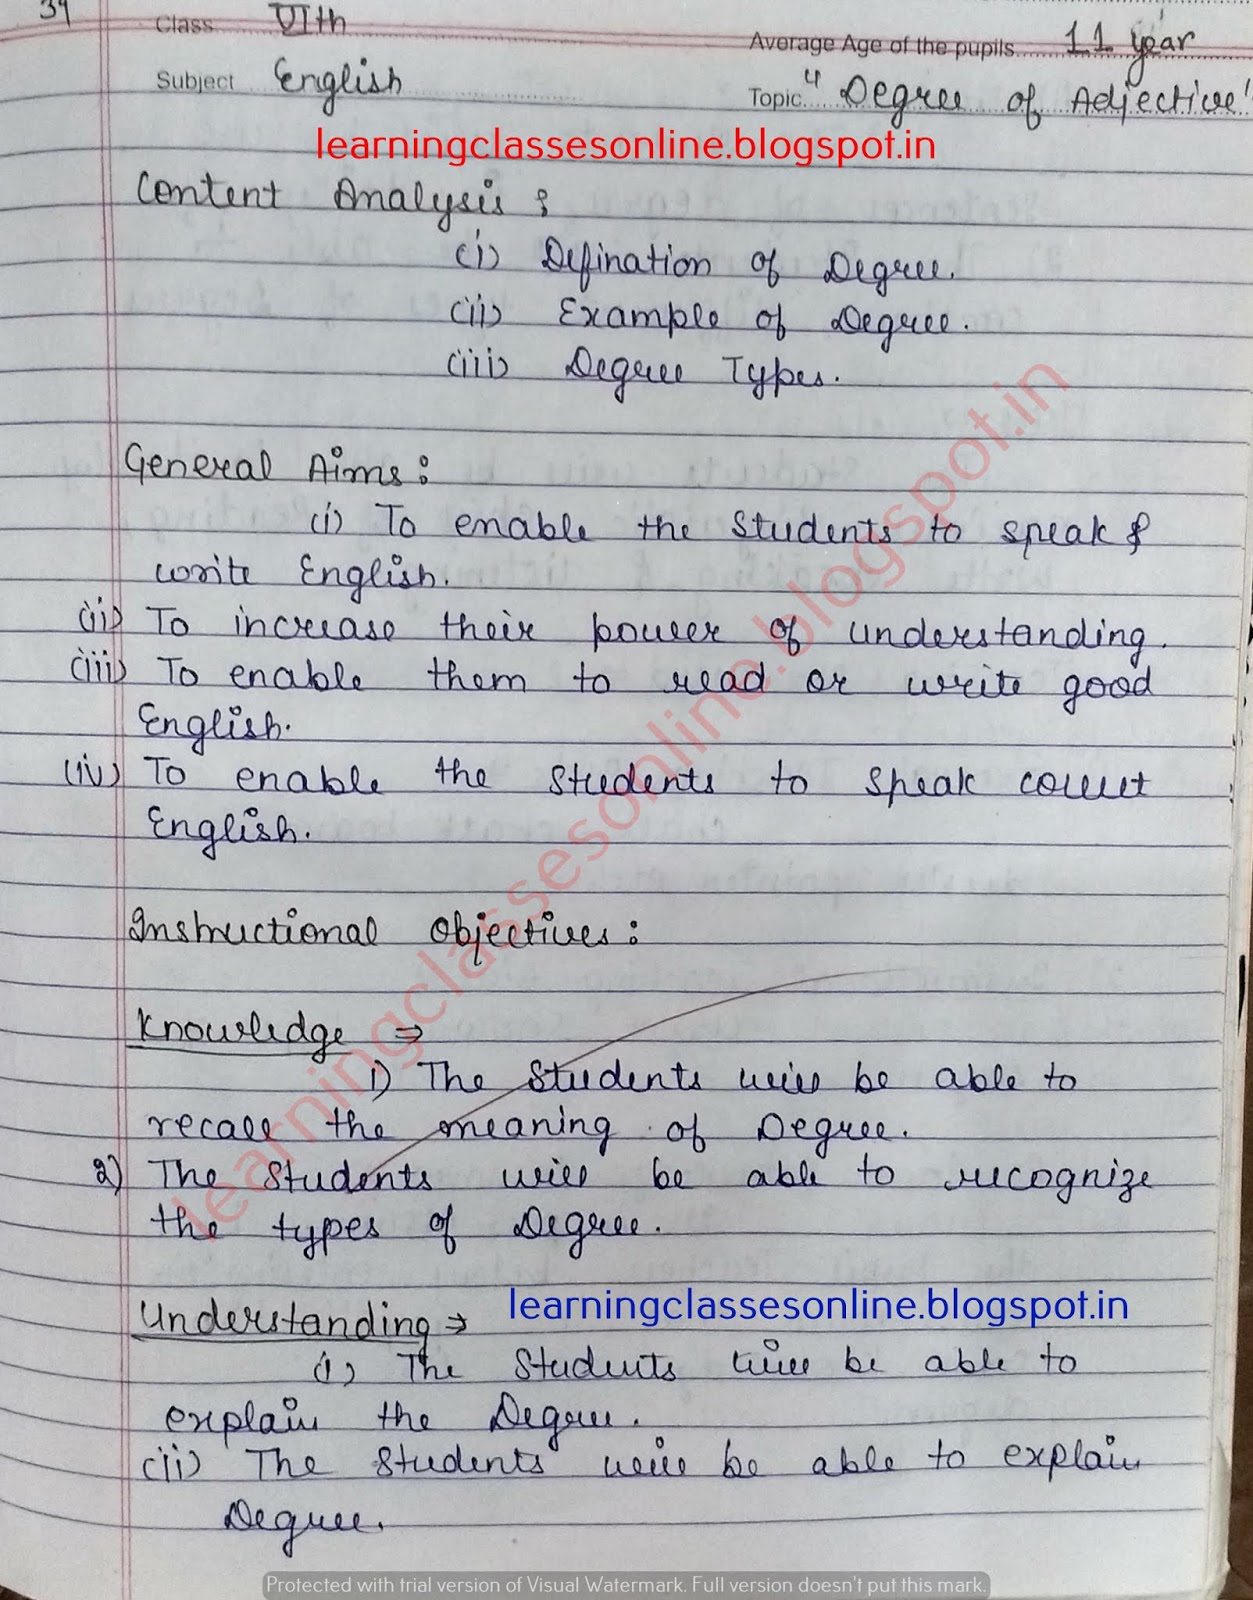 39
Class VIth
Average Age of the pupils 11 year
Subject English
Topic "Degree of Adjective"
learningclassesonline.blogspot.in
Content Analysis :
(i) Defination of Degree.
(ii) Example of Degree.
(iii) Degree Types.
General Aims :
(i) To enable the students to speak &
write English.
(ii) To increase their power of understanding.
(iii) To enable them to read or write good
English.
(iv) To enable the students to speak correct
English.
Instructional Objectives :
Knowledge ⇒
1) The students will be able to
recall the meaning of Degree.
2) The students will be able to recognize
the types of Degree.
Understanding →
learningclassesonline.blogspot.in
(i) The students will be able to
explain the Degree.
(ii) The students will be able to explain
Degree.
learningclassesonline.blogspot.in
Protected with trial version of Visual Watermark. Full version doesn't put this mark.